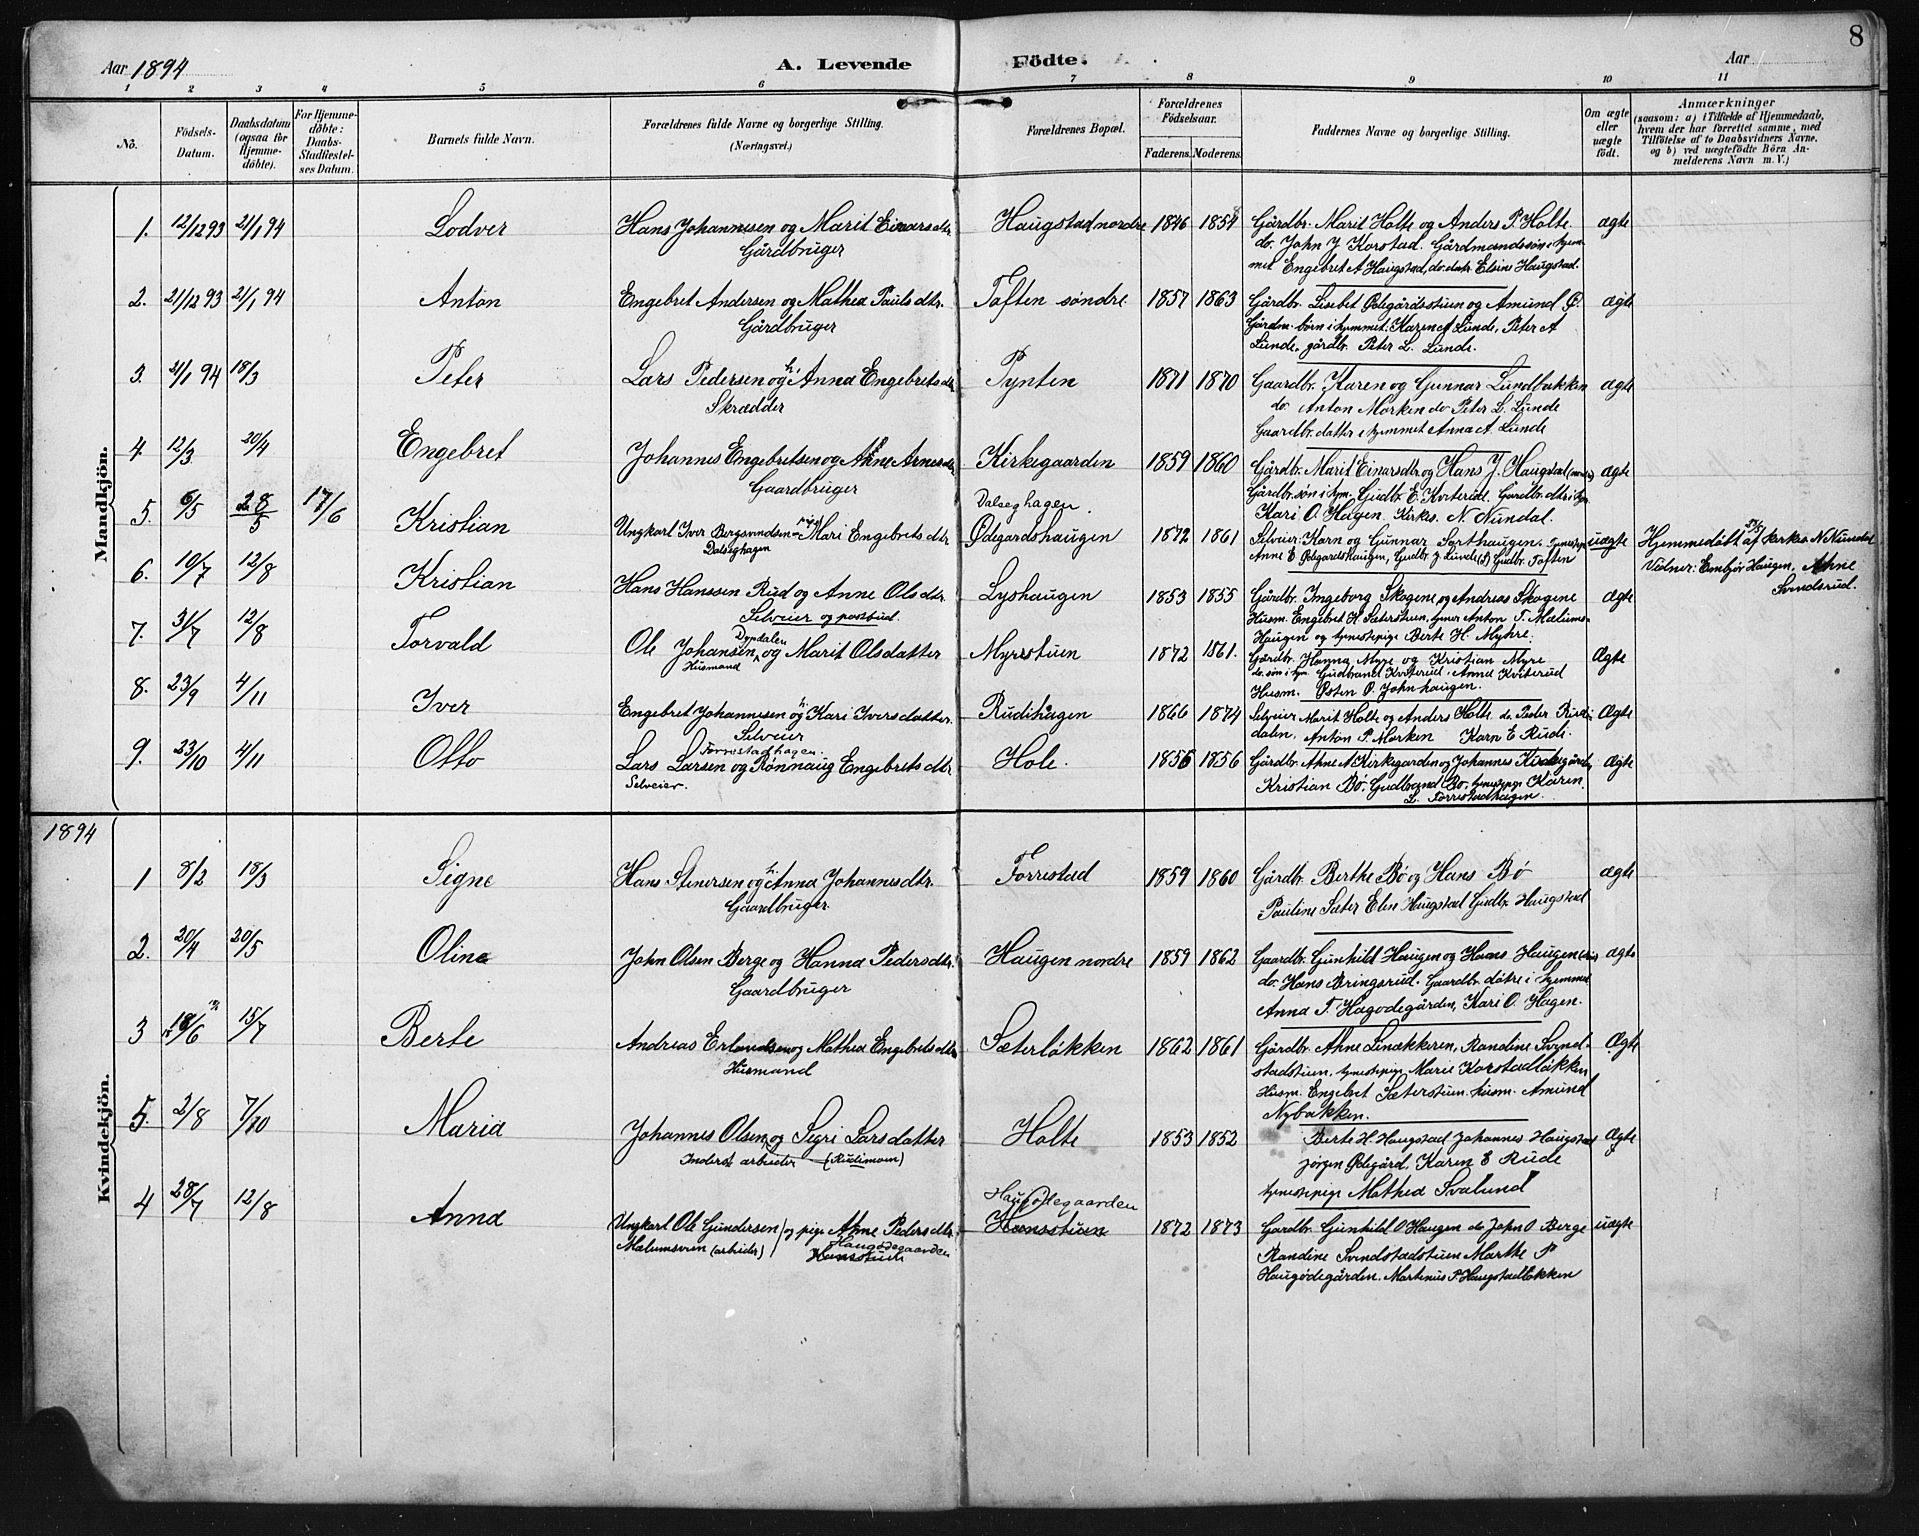 8
Aar 1894 A. Levende Födte. Aar
1 2 3 4 5 6 7 8 9 10 11
No.
Födsels-
Datum.
Daabsdatum
(ogsaa for
Hjemme-
døbte).
For Hjemme-
døbte:
Daabs-
Stadfæstel-
ses Datum.
Barnets fulde Navn.
Forældrenes fulde Navne og borgerlige Stilling.
(Næringsvei.)
Forældrenes Bopæl.
Forældrenes
Födselsaar.
Faderens. Moderens.
Faddernes Navne og borgerlige Stilling.
Om ægte
eller
uægte
født.
Anmærkninger
(saasom: a) i Tilfælde af Hjemmedaab,
hvem der har forrettet samme, med
Tilföielse af to Daabsvidners Navne,
og b) ved uægtefödte Börn An-
melderens Navn m. V.)
Mandkjön.
1. 12/12 93 21/1 94 Lodver Hans Johannesen og Marit Einarsdtr. Haugstad nordre 1846 1854 Gårdbr. Marit Holte og Anders P. Holte. ægte
Gårdbruger
do. John J Korstad. Gårdmandssön i hjem-
met Engebret A Haugstad, do. datr. Elsine Haugstad.
2. 21/12 93 21/1 94 Anton Engebret Andersen og Mathea Pauls dtr. Toften söndre 1857 1863 Gårdbr. Lisebet Ödegårdsstuen og Amund O. ægte
Gårdbruger
Gårdm. börn i hjemmet: Karen A Lunde, Peter A
Lunde. gårdbr. Peter L. Lunde.
3. 21/1 94 18/3 Peter Lars Pedersen og h. Anna Engebretsdtr. Pynten 1871 1870 Gaardbr. Karen og Gunnar Lundbakken ægte
Skrædder
do. Anton Morken do Peter L. Lunde
Gaardbr. datter i hjemmet Anna A. Lunde
4. 12/3 20/4 Engebret Johannes Engebretsen og Ahne Arnesdtr. Kirkegaarden 1859 1860 Gårdbr. Marit Einarsdtr og Hans J. Haugstad ægte
Gaardbruger
Gårdbr. sön i hjm. Gudbr. E. Kviterud. Gårdbr. dtr i hjm
Kari O. Hagen. Kirkes. N. Nundal.
5. 6/5 28/5 17/6 Kristian Ungkarl Iver Bergsvendsen og pige Mari Engebretsdtr Dalseghagen. Ödegardshaugen 1872 1861 uægte
Dalseghagen
Selveier: Karn og Gunnar Sorthaugen.
Anne E Ödegardshaugen, Gudbr. J Lunde(s) Gudbr. Toften
Hjemmedöbt af kirkes. N Nundal
Vidner: Embjör Haugen, Ahne
Svendsrud.
6. 10/7 12/8 Kristian Hans Hanssen Rud og Anne Olsdtr. Lyshaugen 1853 1855 Gårdbr. Ingeborg Skogene og Andreas Skogene ægte
Selveier og postbud.
Husm. Engebret H. Sæterstuen, tjener Anton T. Mælums-
Haugen og tjenestepige Berte H. Myhre.
7. 31/7 12/8 Torvald Ole Johansen Dypdalen og Marit Olsdatter Myrstuen 1872 1861. Gårdbr. Hanna Myre og Kristian Myre Ægte
Husmand
do. sön i hjm. Gudbrand Kviterud. Anna Kviterud
Husm. Östen O. Johnhaugen.
8. 23/9 4/11 Iver Engebret Johannesen og h. Kari Iversdatter Rudihagen 1866 1874 Selveier Marit Holte og Anders Holte do. Peder Rudi- Ægte
Selveier
dalen, Anton P. Morken Karn E Rudi.
9. 23/10 4/11 Otto Lars Larsen og Rönnaug Engebretsdtr Hole. 1856 1856 Gårdbr. Ahne N Kirkegarden og Johannes Kirkegården Ægte
Forrestadhagen.
Selveier.
Kristian Bö, Gudbrand Bö, tjenestepige Karen
L. Forrestadhagen.
1894
Kvindekjön.
1 8/2 18/3 Signe Hans Stenersen og h. Anna Johannesdtr. Forrestad 1859 1860 Gårdbr. Berthe Bö og Hans Bö ægte
Gaardbruger.
Pauline Sæter Elen Haugstad Gudbr. Haugstad
2. 20/4 20/5 Oline John Olsen Berge og Hanna Pedersdtr. Haugen nordre 1859 1862 Gaardbr. Gunhild Haugen og Hans Haugen ægte
Gaardbruger
do. Hans Bringsrud. Gaardbr. dötre i hjemmet
Anna T. Hagodegården, Kari O. Hagen.
3 18/6 15/7 Berte Andreas Erlandsen og Mathea Engebretsdtr Sæterlökken 1862 1861 Gårdbr. Ahne Linækkeren, Randine Svend- Ægte
Husmand
stadstuen, tjenestepige Marie Korstadlökken
Husm. Engebret Sæterstuen. husm. Amund
Nybakken.
5. 2/8 7/10 Maria Johannes Olsen og Segri Larsdatter Holte 1853 1852 Berte H. Haugstad Johannes Haugstad Ægte
Inderst arbeider (Rudimoen)
Jörgen Ödegård, Karen E Rude
tjenestepige Mathea Svalund
4 28/7 12/8 Anna Ungkarl Ole Gundersen og pige Ahne Pedersdtr. Haugödegaarden Hansstuen 1872 1873 Gårdbr. Gunhild O Haugen do John O. Berge uægte
Mælumsvren (arbeider) Haugödegaarden Hansstuen
Randine Svendstadstuen Marthe P
Haugödegården. Martinus P. Haugstadlökken